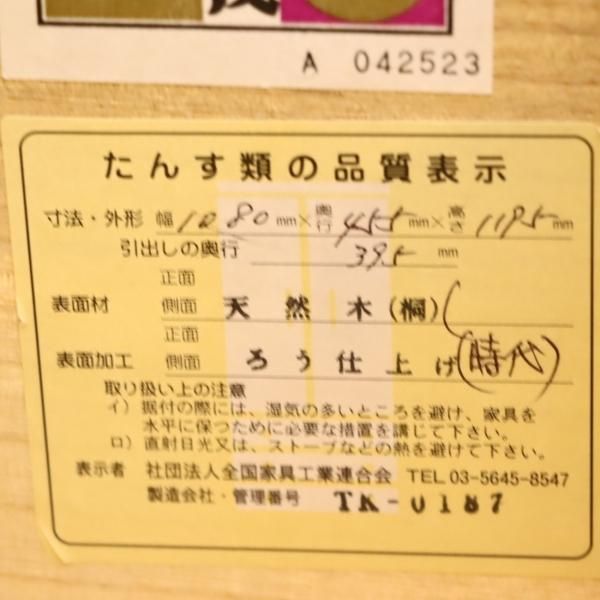 A 042523
たんす類の品質表示
寸法・外形 幅 1080 mm × 奥行 455 mm × 高さ 1195 mm
引出しの奥行 395 mm
正面
表面材 側面 天然木(桐)
正面
表面加工 側面 ろう仕上げ(時代)
取り扱い上の注意
イ）据付の際には、湿気の多いところを避け、家具を
水平に保つために必要な措置を講じて下さい。
ロ）直射日光又は、ストーブなどの熱を避けて下さい。
表示者 社団法人全国家具工業連合会 TEL 03-5645-8547
製造会社・管理番号 TK-0187